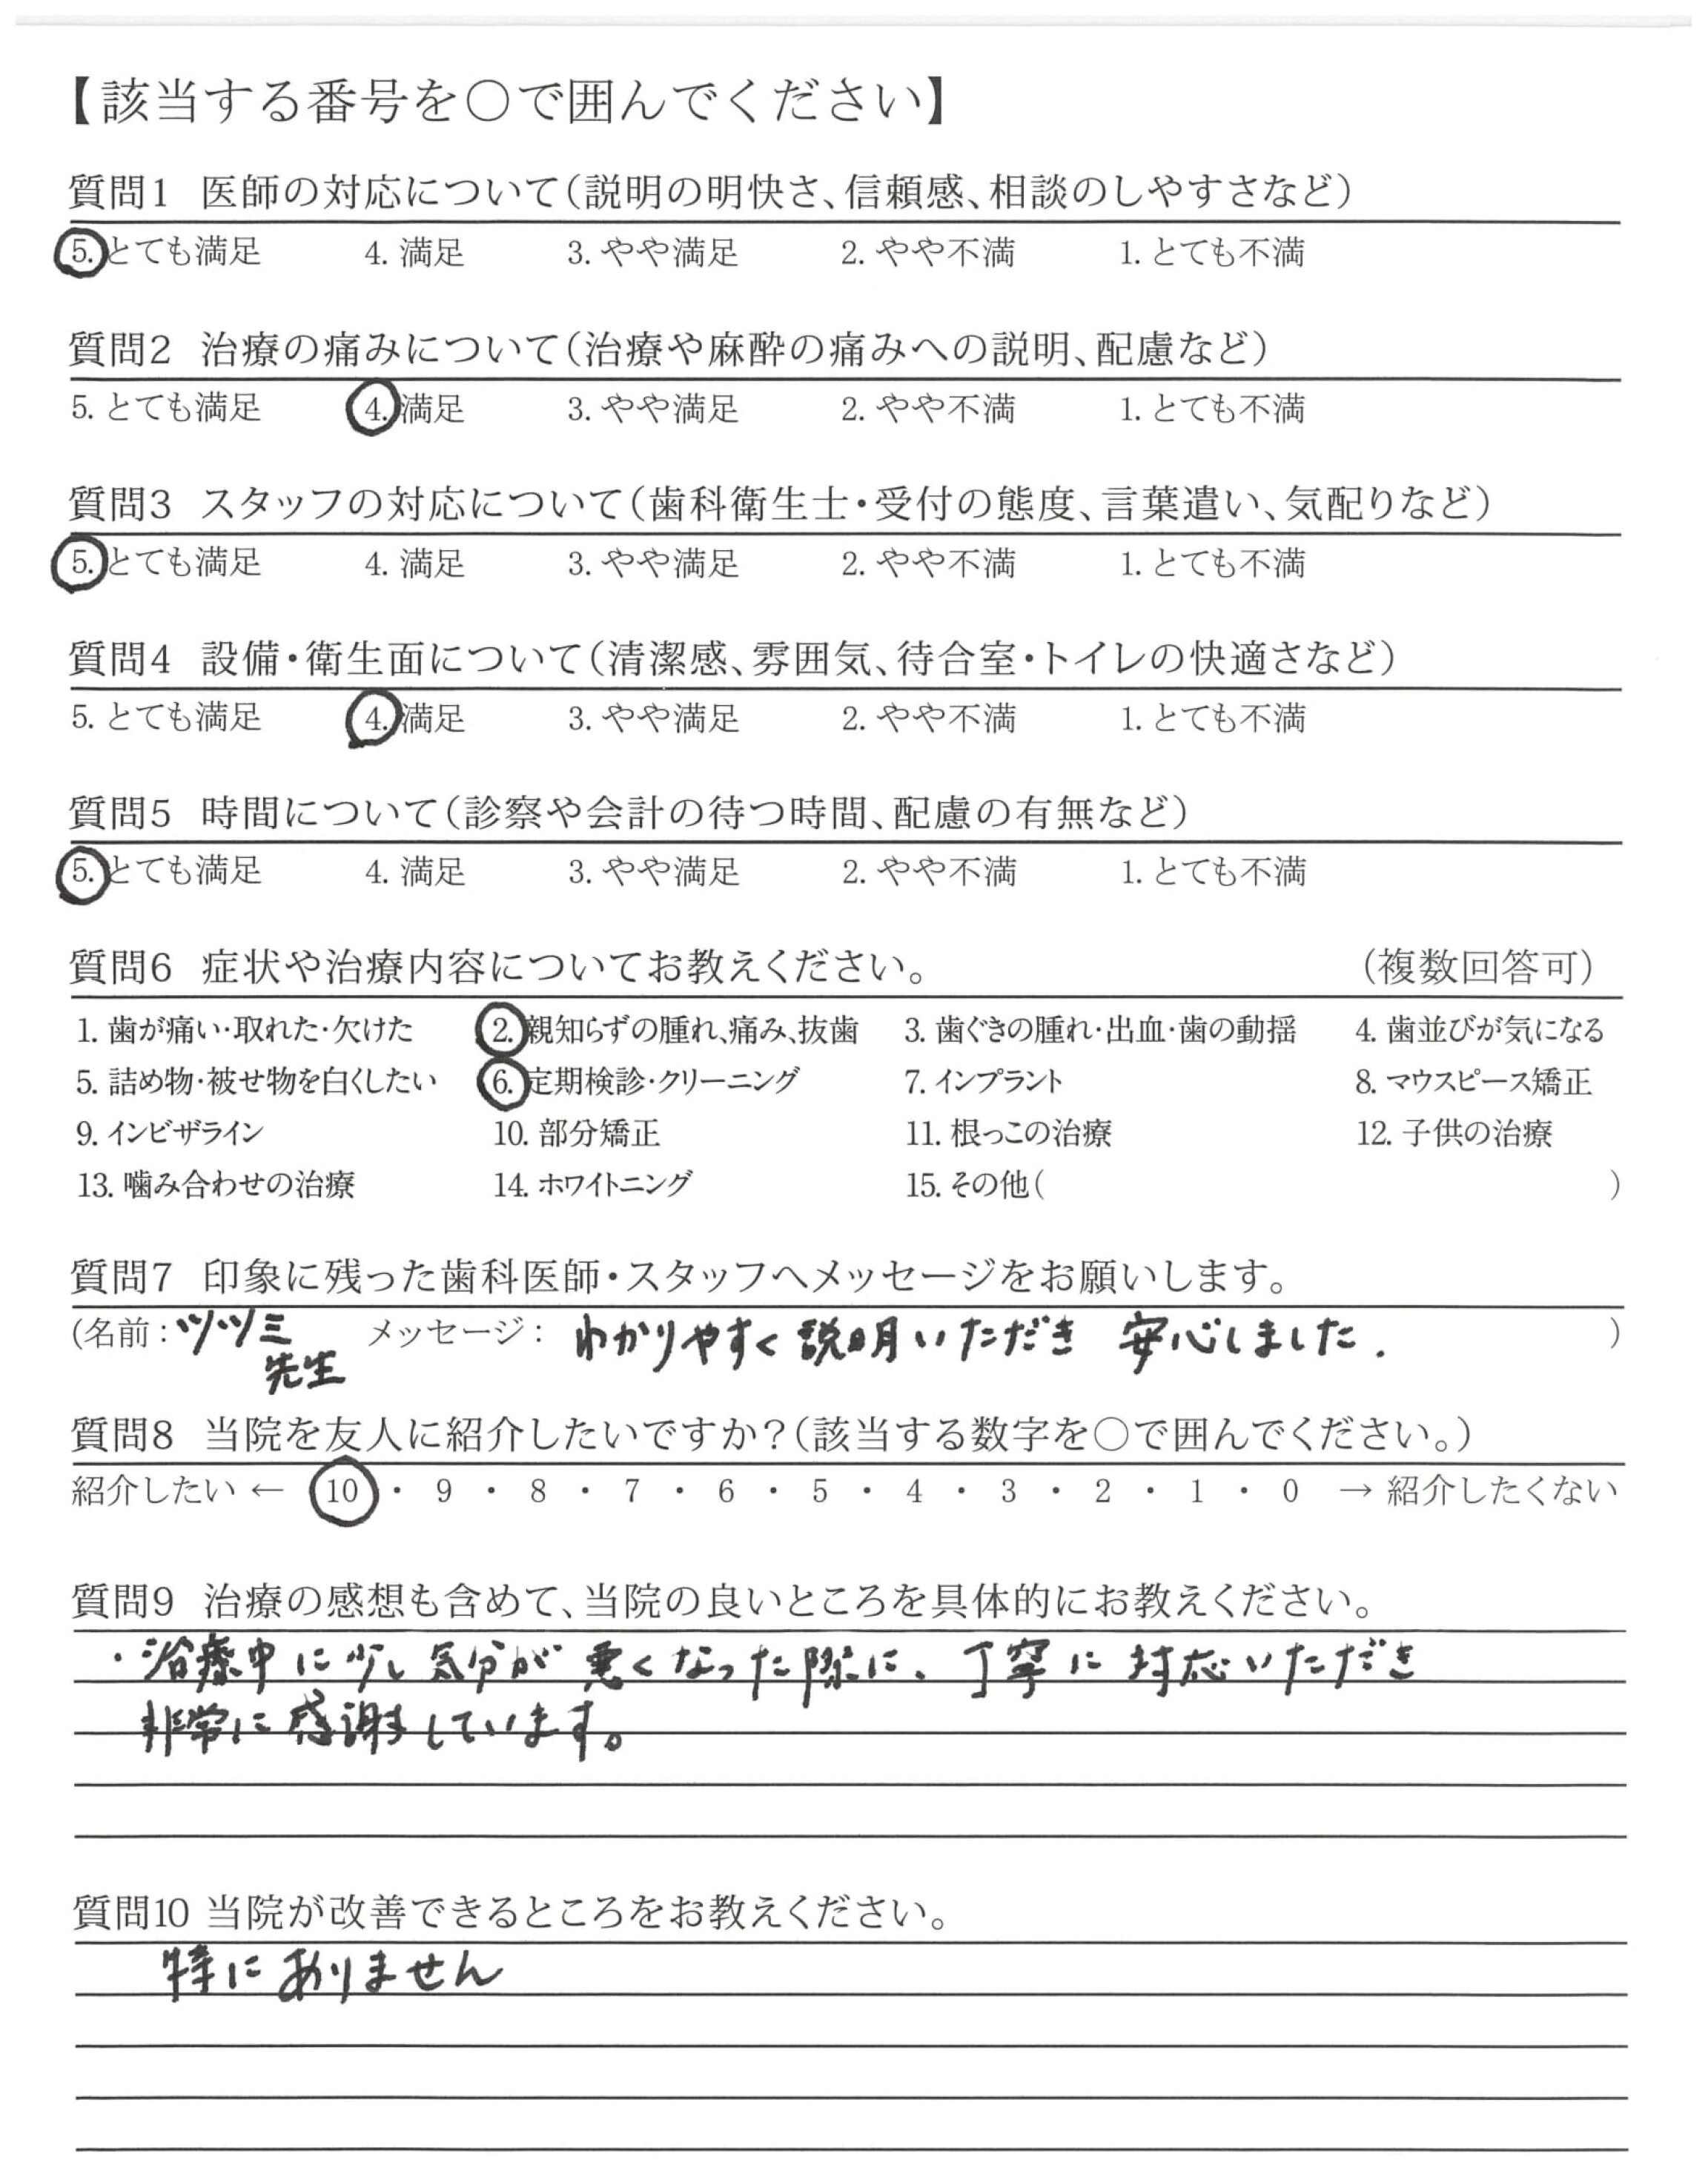 【該当する番号を○で囲んでください】
質問1 医師の対応について(説明の明快さ、信頼感、相談のしやすさなど)
5. とても満足 4. 満足 3. やや満足 2. やや不満 1. とても不満
質問2 治療の痛みについて(治療や麻酔の痛みへの説明、配慮など)
5. とても満足 4. 満足 3. やや満足 2. やや不満 1. とても不満
質問3 スタッフの対応について(歯科衛生士・受付の態度、言葉遣い、気配りなど)
5. とても満足 4. 満足 3. やや満足 2. やや不満 1. とても不満
質問4 設備・衛生面について(清潔感、雰囲気、待合室・トイレの快適さなど)
5. とても満足 4. 満足 3. やや満足 2. やや不満 1. とても不満
質問5 時間について(診察や会計の待つ時間、配慮の有無など)
5. とても満足 4. 満足 3. やや満足 2. やや不満 1. とても不満
質問6 症状や治療内容についてお教えください。 (複数回答可)
1. 歯が痛い・取れた・欠けた 2. 親知らずの腫れ、痛み、抜歯 3. 歯ぐきの腫れ・出血・歯の動揺 4. 歯並びが気になる
5. 詰め物・被せ物を白くしたい 6. 定期検診・クリーニング 7. インプラント 8. マウスピース矯正
9. インビザライン 10. 部分矯正 11. 根っこの治療 12. 子供の治療
13. 噛み合わせの治療 14. ホワイトニング 15. その他( )
質問7 印象に残った歯科医師・スタッフへメッセージをお願いします。
(名前：ツツミ メッセージ： わかりやすく説明いただき 安心しました. )
先生
質問8 当院を友人に紹介したいですか?(該当する数字を○で囲んでください。)
紹介したい ← 10 ・ 9 ・ 8 ・ 7 ・ 6 ・ 5 ・ 4 ・ 3 ・ 2 ・ 1 ・ 0 → 紹介したくない
質問9 治療の感想も含めて、当院の良いところを具体的にお教えください。
・治療中に少し気分が悪くなった際に、丁寧に対応いただき
非常に感謝しています。
質問10 当院が改善できるところをお教えください。
特にありません